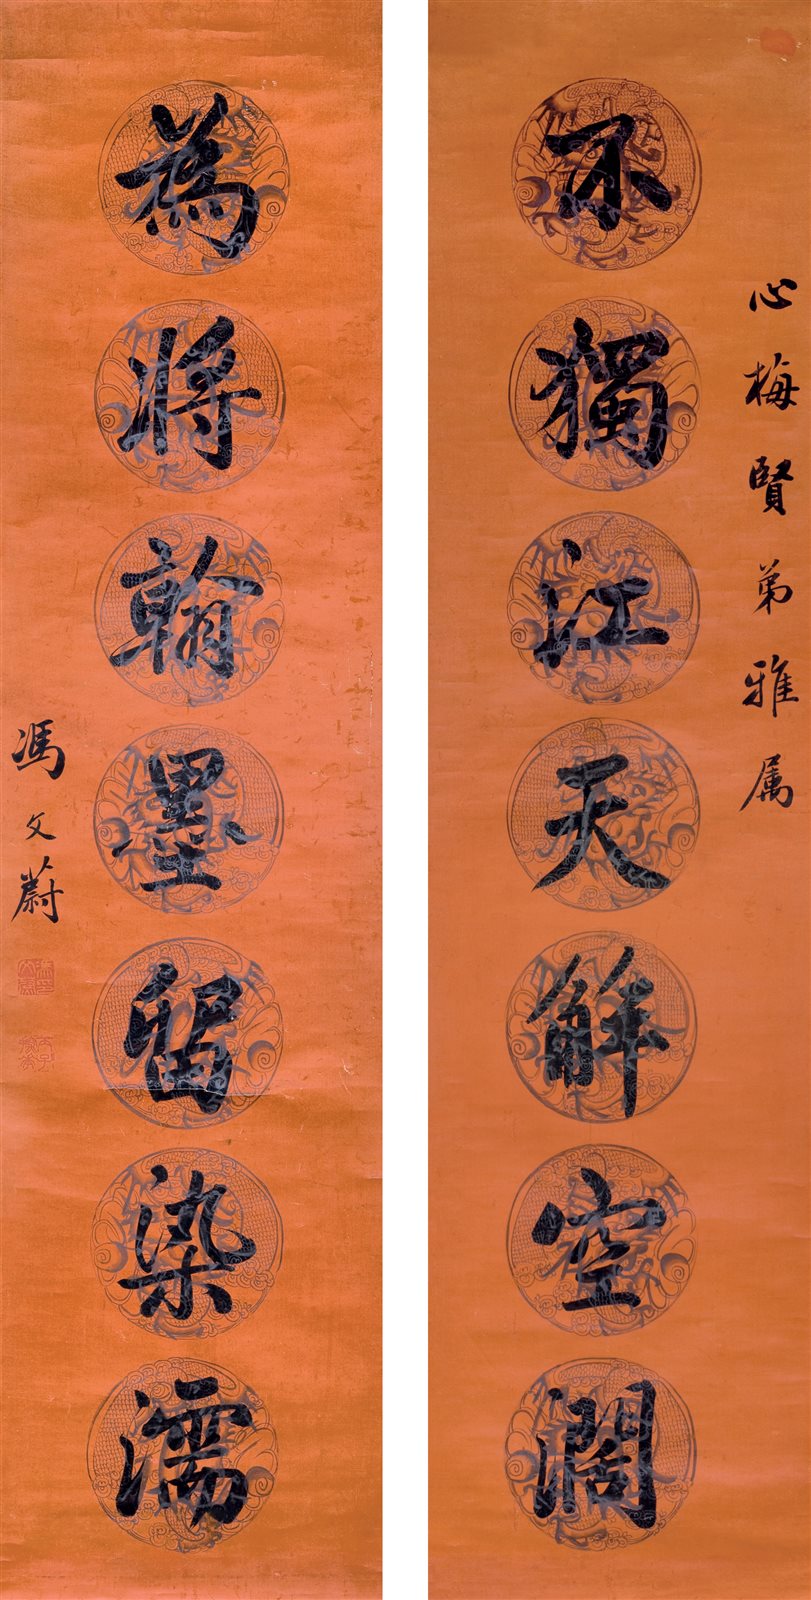 心梅賢弟雅属
不獨江天觧空濶
為將翰墨留染濡
馮文蔚